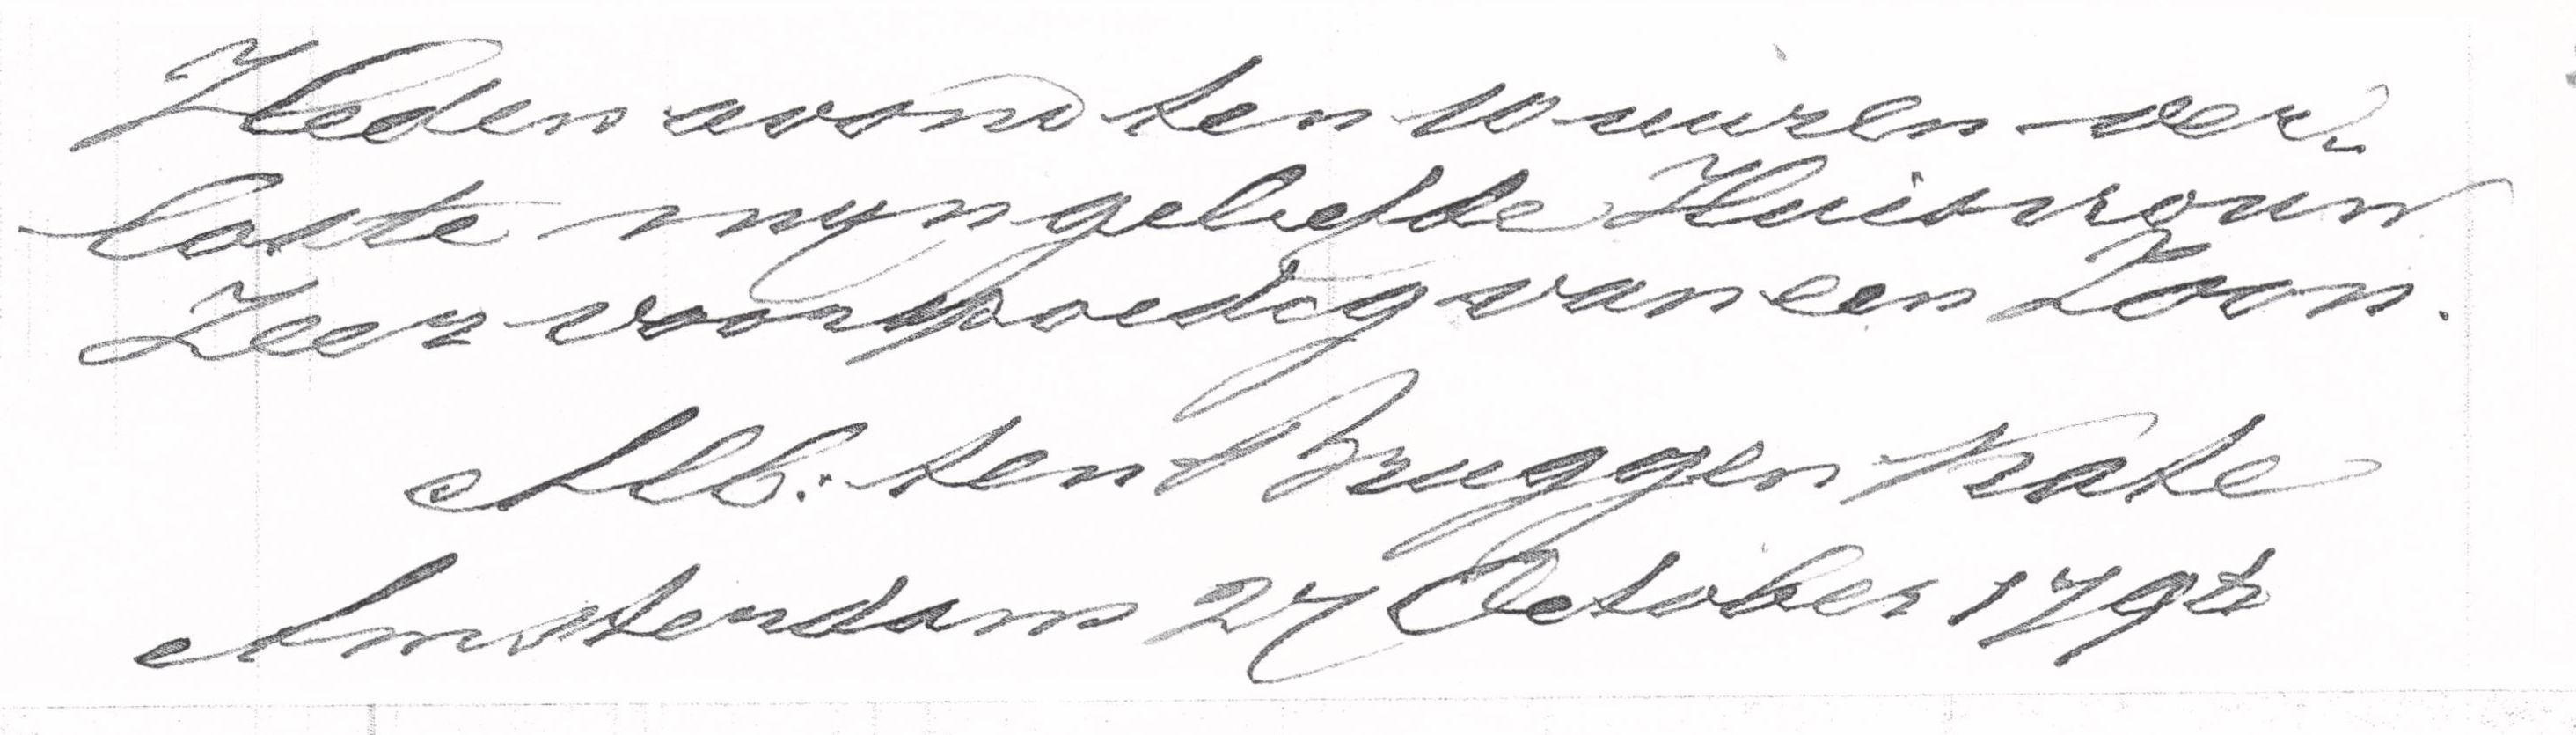 Heden avond ten 10 uuren ver-
loste myn geliefde Huisvrouw
Zeer voorspoedig van een Zoon.
Alb: ten Bruggen Kate
Amsterdam 27 October